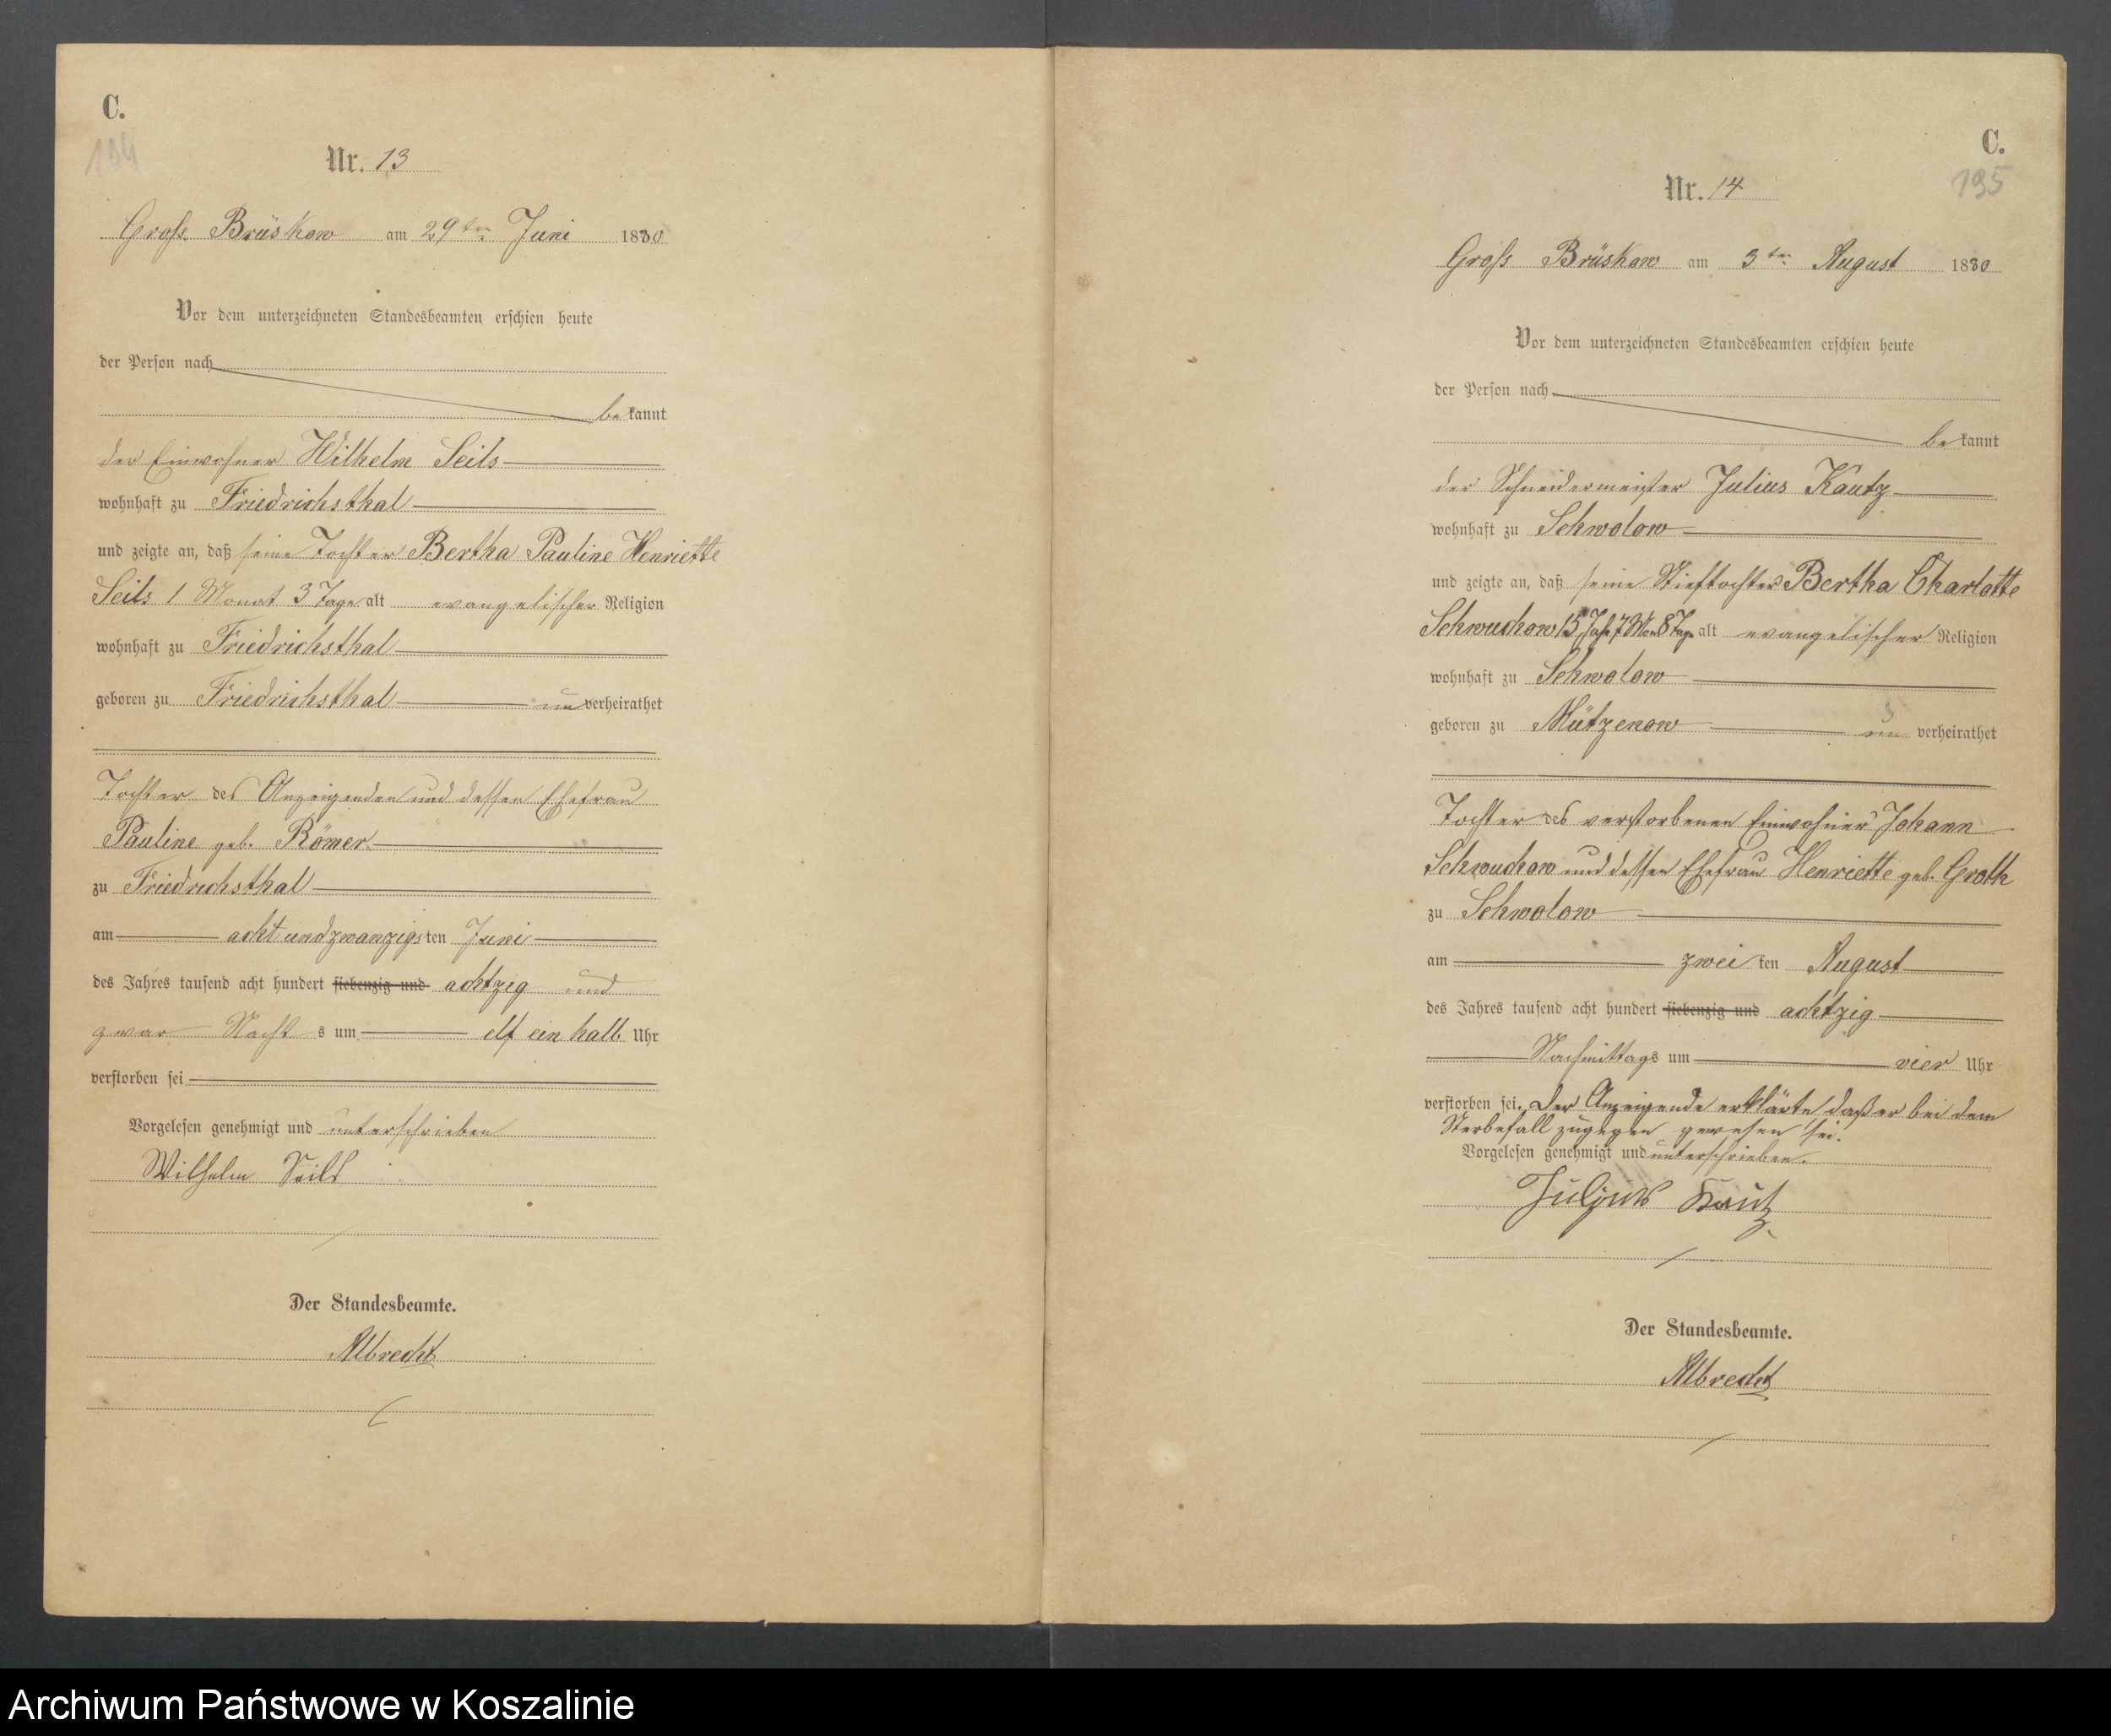 C.
194
Nr. 13
Gross Brüskow am 29ten Juni 1880
Vor dem unterzeichneten Standesbeamten erschien heute
der Person nach
bekannt
der Einwohner Wilhelm Seils
wohnhaft zu Friedrichsthal
und zeigte an, daß seine Tochter Bertha Pauline Henriette
Seils 1 Monat 3 Tage alt evangelischer Religion
wohnhaft zu Friedrichsthal
geboren zu Friedrichsthal unverheirathet
Tochter des Anzeigenden und dessen Ehefrau
Pauline geb. Römer
zu Friedrichsthal
am acht und zwanzigsten Juni
des Jahres tausend acht hundert siebenzig und achtzig und
zwar Nachts um elf ein halb Uhr
verstorben sei
Vorgelesen genehmigt und unterschrieben
Wilhelm Seils
Der Standesbeamte.
Albrecht
C.
195
Nr. 14
Gross Brüskow am 3ten August 1880
Vor dem unterzeichneten Standesbeamten erschien heute
der Person nach
bekannt
der Schneidermeister Julius Kautz
wohnhaft zu Schwolow
und zeigte an, daß seine Stieftochter Bertha Charlotte
Schwuchow 15 Jahr 7 Mon 8 Tage alt evangelischer Religion
wohnhaft zu Schwolow
geboren zu Mützenow unverheirathet
Tochter des verstorbenen Einwohner Johann
Schwuchow und dessen Ehefrau Henriette geb. Groth
zu Schwolow
am zweiten August
des Jahres tausend acht hundert siebenzig und achtzig
Nachmittags um vier Uhr
verstorben sei. Der Anzeigende erklärte daß er bei dem
Sterbefall zugegen gewesen sei.
Vorgelesen genehmigt und unterschrieben.
Juljus Kautz
Der Standesbeamte.
Albrecht
Archiwum Państwowe w Koszalinie